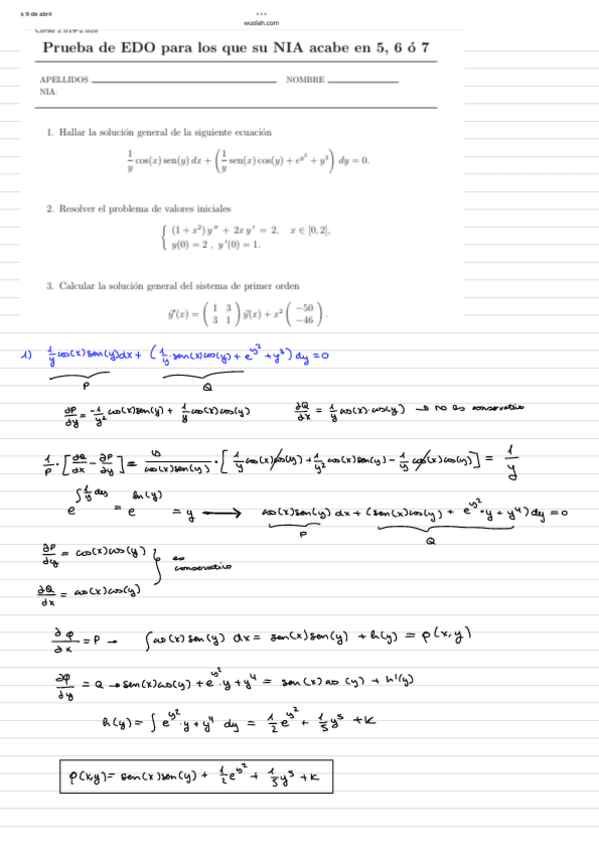 s 9 de abril
wuolah.com
Curso 2.019-2.020
Prueba de EDO para los que su NIA acabe en 5, 6 ó 7
APELLIDOS NOMBRE
NIA:
1. Hallar la solución general de la siguiente ecuación
1/y cos(x) sen(y) dx + (1/y sen(x) cos(y) + e^{y²} + y³) dy = 0.
2. Resolver el problema de valores iniciales
{ (1 + x²) y'' + 2x y' = 2, x ∈ [0, 2],
y(0) = 2 , y'(0) = 1.
3. Calcular la solución general del sistema de primer orden
y⃗'(x) = ( 1 3 ; 3 1 ) y⃗(x) + x² ( −50 ; −46 ) .
1) 1/y cos(x) sen(y) dx + (1/y · sen(x) cos(y) + e^{y²} + y³) dy = 0
P Q
∂P/∂y = -1/y² cos(x) sen(y) + 1/y cos(x) cos(y) ∂Q/∂x = 1/y cos(x) · cos(y) → no es conservativo
1/P · [∂Q/∂x - ∂P/∂y] = y/(cos(x) sen(y)) · [1/y cos(x) cos(y) + 1/y² cos(x) sen(y) - 1/y cos(x) cos(y)] = 1/y
e^{∫ 1/y dy} = e^{ln(y)} = y → cos(x) sen(y) dx + (sen(x) cos(y) + e^{y²} · y + y⁴) dy = 0
P Q
∂P/∂y = cos(x) cos(y) } es conservativo
∂Q/∂x = cos(x) cos(y)
∂φ/∂x = P → ∫ cos(x) sen(y) dx = sen(x) sen(y) + h(y) = φ(x,y)
∂φ/∂y = Q → sen(x) cos(y) + e^{y²} · y + y⁴ = sen(x) cos(y) + h'(y)
h(y) = ∫ e^{y²} · y + y⁴ dy = 1/2 e^{y²} + 1/5 y⁵ + K
φ(x,y) = sen(x) sen(y) + 1/2 e^{y²} + 1/5 y⁵ + K